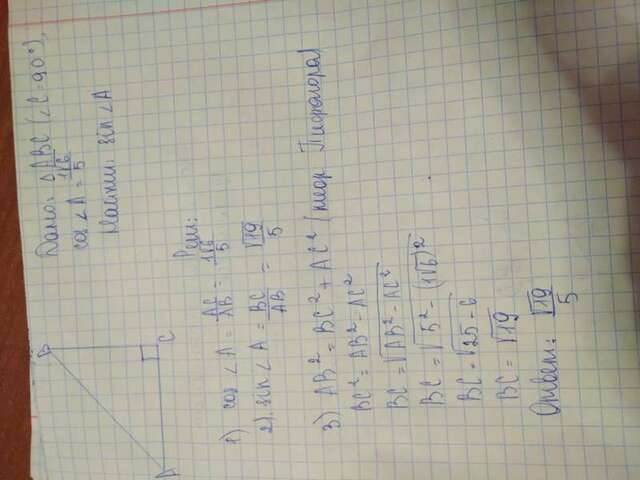 Дано: △ABC (∠C=90°),
cos∠A = 1√6/5
Найти: sin∠A
B
A
C
Реш:
1) cos ∠A = AC/AB = 1√6/5
2). sin ∠A = BC/AB = √19/5
3) AB² = BC² + AC² (теор Пифагора)
BC² = AB² - AC²
BC = √AB² - AC²
BC = √5² - (1√6)²
BC = √25 - 6
BC = √19
Ответ: √19/5